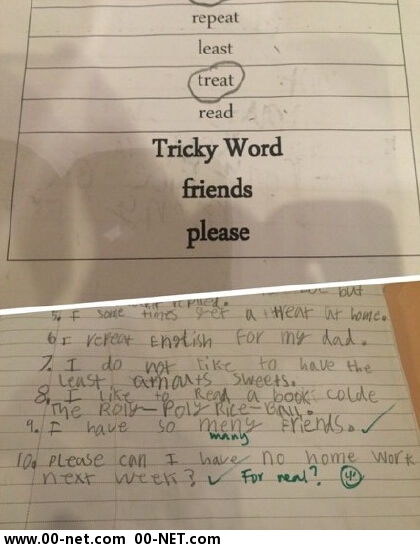 repeat
least
treat
read
Tricky Word
friends
please
but
replied.
5. I some times get a treat at home.
6. I repeat English for my dad.
7. I do not like to have the
least amaunts sweets.
8. I like to Read a book colde
The Roly-Poly Rice-Ball.
9. I have so meny friends. ✓
many
10. please can I have no home work
next week? ✓ For real?
www.00-net.com 00-NET.com